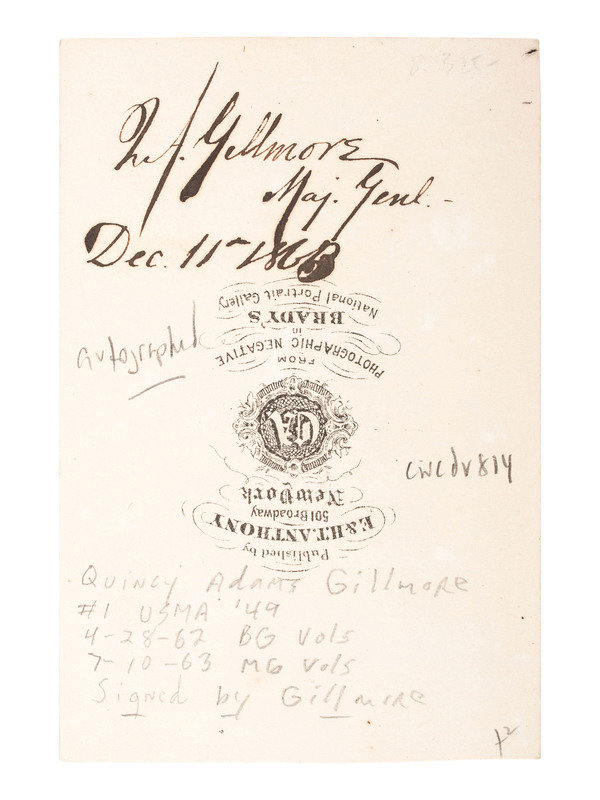 Q. A. Gillmore
Maj. Genl.-
Dec. 11th 1863
autographed
cwcdv814
Published by
E. & H.T. ANTHONY
501 Broadway
New York
FROM
PHOTOGRAPHIC NEGATIVE
in
BRADY'S
National Portrait Gallery
Quincy Adams Gillmore
#1 USMA '49
4-28-62 BG Vols
7-10-63 MG Vols
Signed by Gillmore